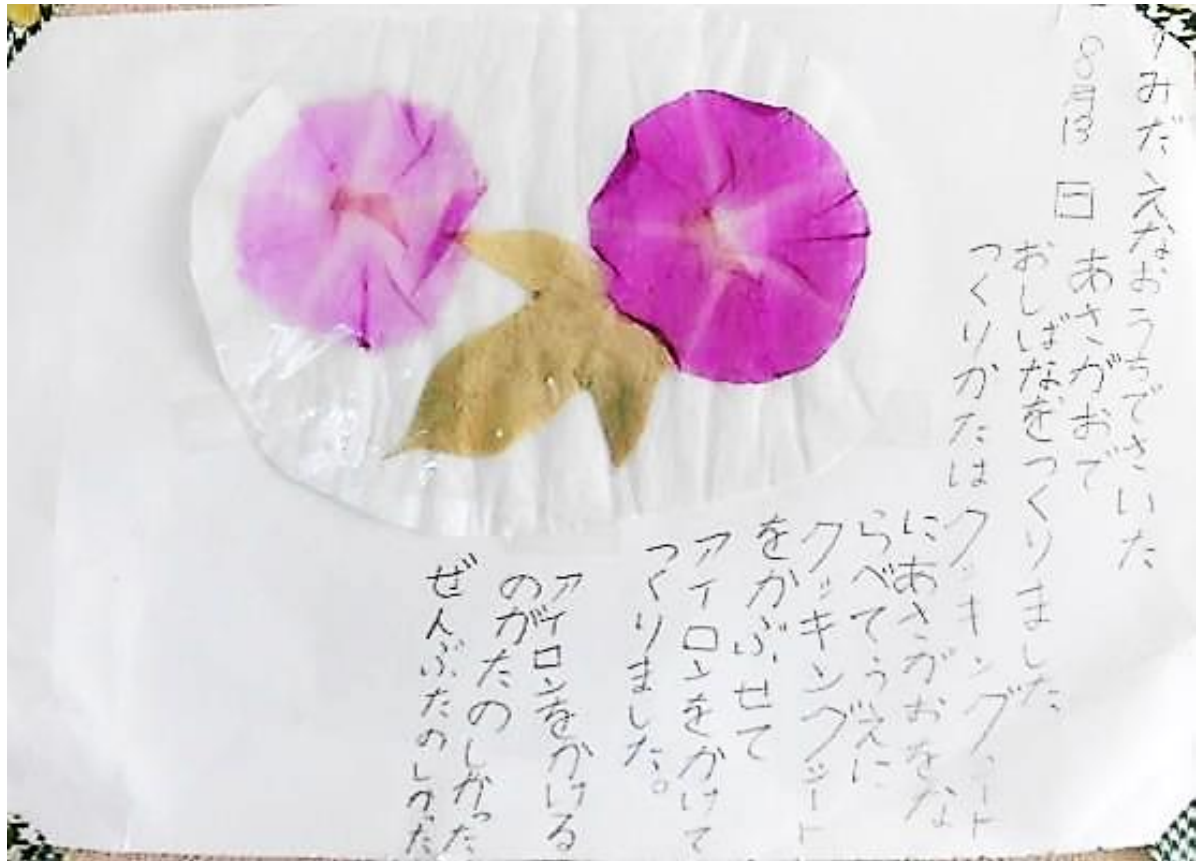 すみだ えな おうちでさいた
8月13 日 あさがおで
おしばなをつくりました
つくりかたはクッキングシート
にあさがおをな
らべてうえに
クッキングシート
をかぶせて
アイロンをかけて
つくりました。
アイロンをかける
のがたのしかった
ぜんぶたのしかった